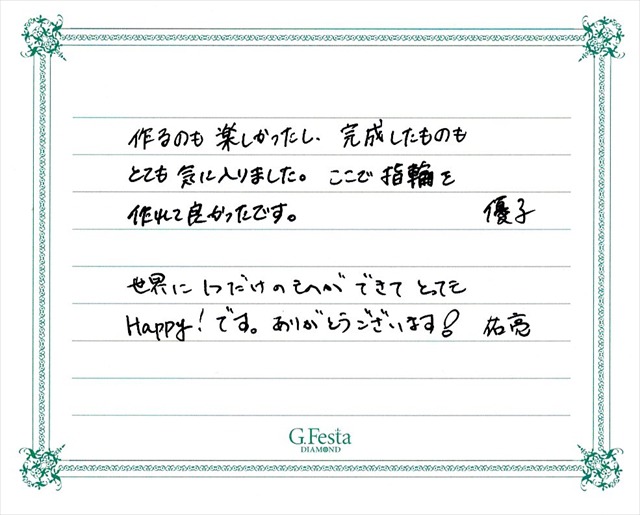 作るのも楽しかったし、完成したものも
とても気に入りました。ここで指輪を
作れて良かったです。 優子
世界に1つだけのものができてとっても
Happy!です。ありがとうございます! 祐亮
G.Festa
DIAMOND